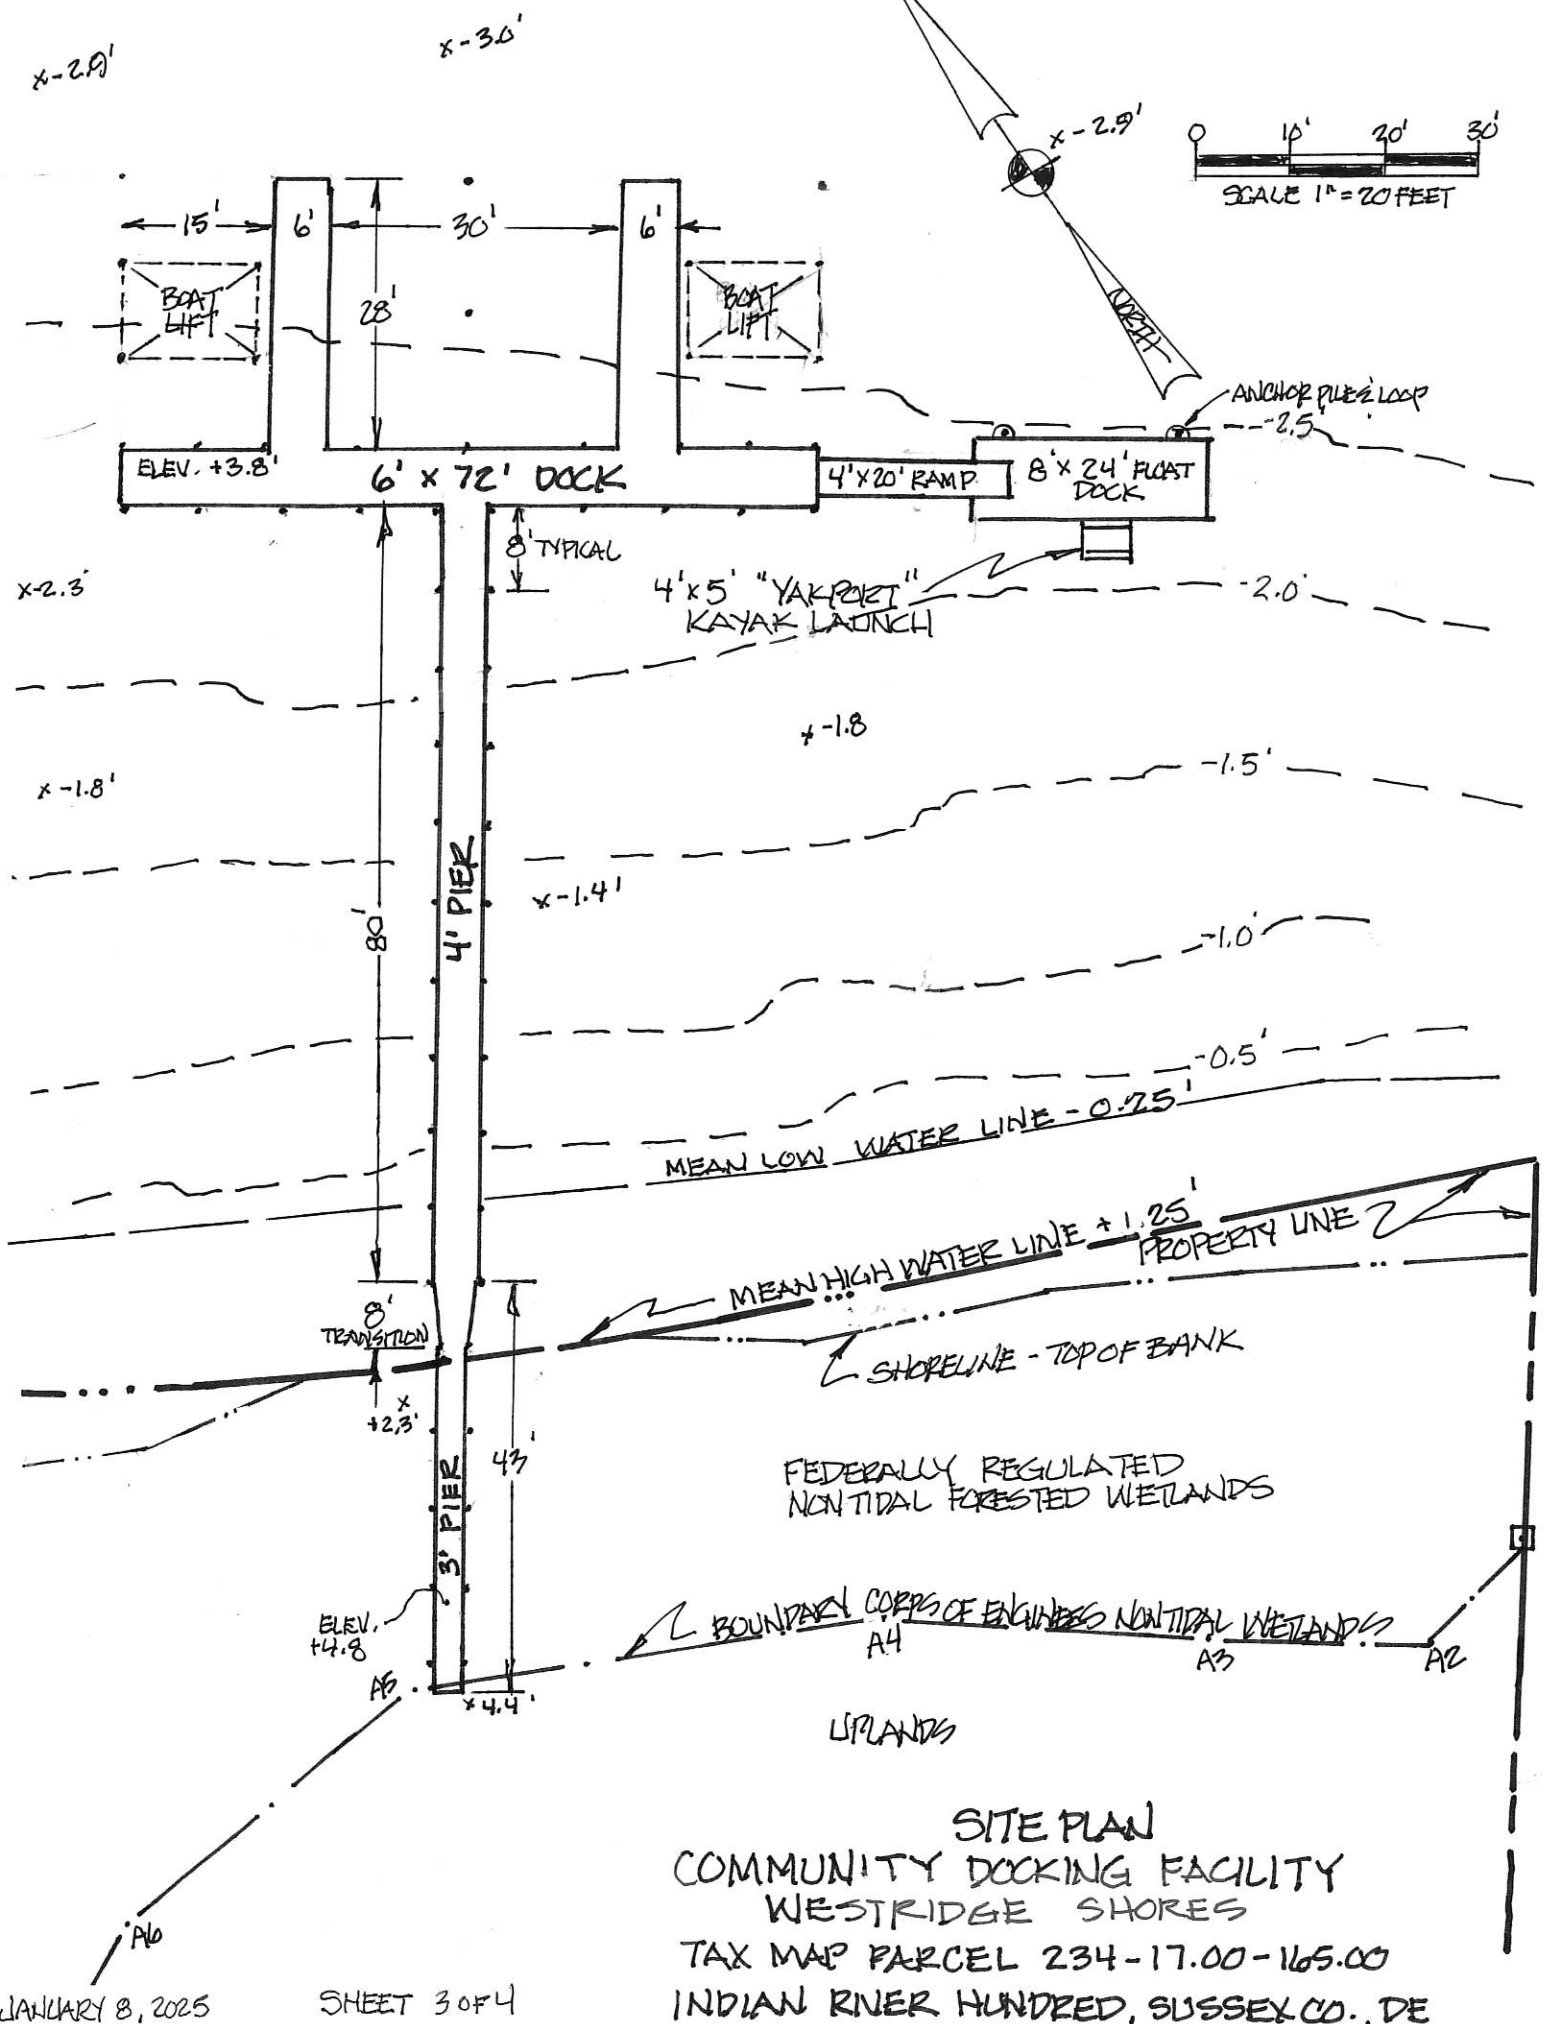 x-2.9'
x-3.0'
x-2.9'
0 10' 20' 30'
SCALE 1"=20 FEET
15' 6' 30' 6'
BOAT
LIFT
28'
BOAT
LIFT
NORTH
ANCHOR PILE & LOOP
-2.5'
ELEV. +3.8'
6' x 72' DOCK
4'x20' RAMP
8'x 24' FLOAT
DOCK
8' TYPICAL
x-2.3'
4'x5' "YAKPORT"
KAYAK LAUNCH
-2.0'
x-1.8
x-1.8'
-1.5'
4' PIER
x-1.4'
80'
-1.0'
-0.5'
MEAN LOW WATER LINE -0.25'
MEAN HIGH WATER LINE +1.25'
PROPERTY LINE
8'
TRANSITION
SHORELINE - TOP OF BANK
x
+2.3'
43'
3' PIER
FEDERALLY REGULATED
NONTIDAL FORESTED WETLANDS
ELEV.
+4.8
BOUNDARY CORPS OF ENGINEES NONTIDAL WETLANDS
A4
A3
A2
A5
x4.4'
UPLANDS
SITE PLAN
COMMUNITY DOCKING FACILITY
WESTRIDGE SHORES
A6
TAX MAP PARCEL 234-17.00-165.00
JANUARY 8, 2025
SHEET 3 OF 4
INDIAN RIVER HUNDRED, SUSSEX CO., DE